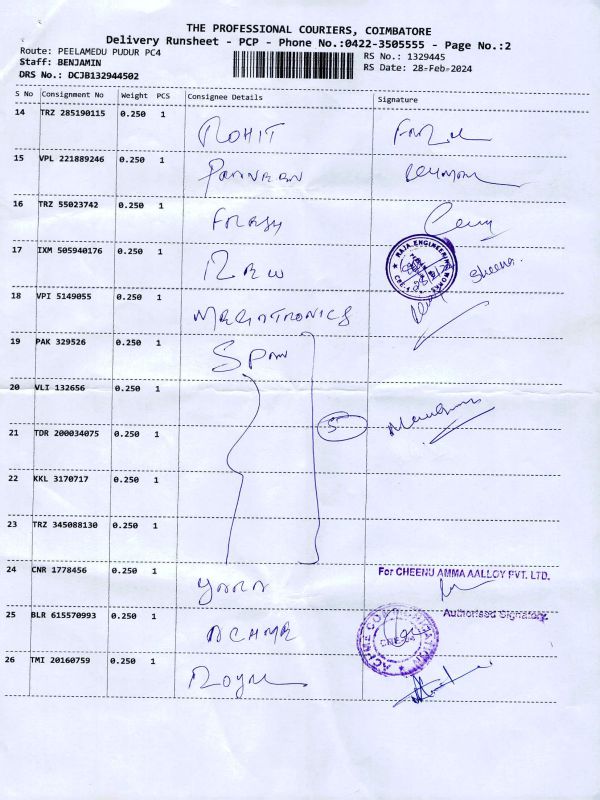 THE PROFESSIONAL COURIERS, COIMBATORE
Delivery Runsheet - PCP - Phone No.:0422-3505555 - Page No.:2
Route: PEELAMEDU PUDUR PC4
RS No.: 1329445
Staff: BENJAMIN
RS Date: 28-Feb-2024
DRS No.: DCJB132944502
S No Consignment No Weight PCS Consignee Details Signature
14 TRZ 285190115 0.250 1 ROHIT
15 VPL 221889246 0.250 1
16 TRZ 55023742 0.250 1
17 IXM 505940176 0.250 1
RAJA ENGINEERING WORKS
Sheena.
18 VPI 5149055 0.250 1 MEGATRONICS
19 PAK 329526 0.250 1 SPAN
20 VLI 132656 0.250 1
21 TDR 200034075 0.250 1 5
22 KKL 3170717 0.250 1
23 TRZ 345088130 0.250 1
24 CNR 1778456 0.250 1 For CHEENU AMMA AALLOY PVT. LTD.
Authorised Signatory.
25 BLR 615570993 0.250 1 ACHME
26 TMI 20160759 0.250 1